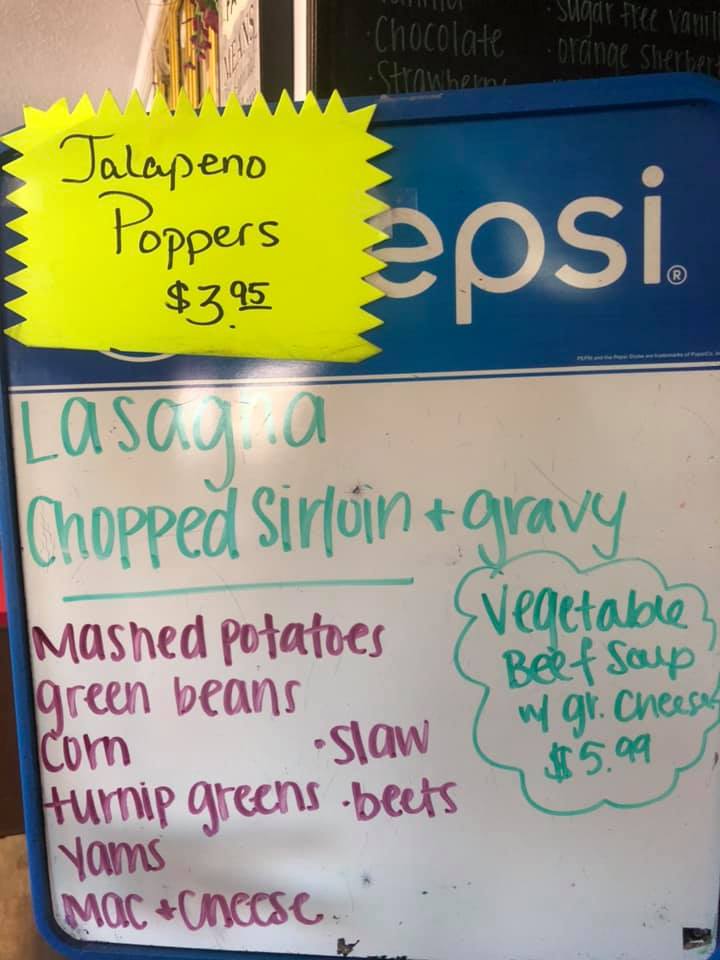 Chocolate
Sugar free vanil
orange sherber
Strawberry
Jalapeno
Poppers
$3.95
epsi®
Lasagna
Chopped Sirloin + gravy
Mashed potatoes
green beans
Corn
·slaw
turnip greens ·beets
Yams
Mac + Cheese
Vegetable
Beef Soup
w/ gr. Cheese
$5.99